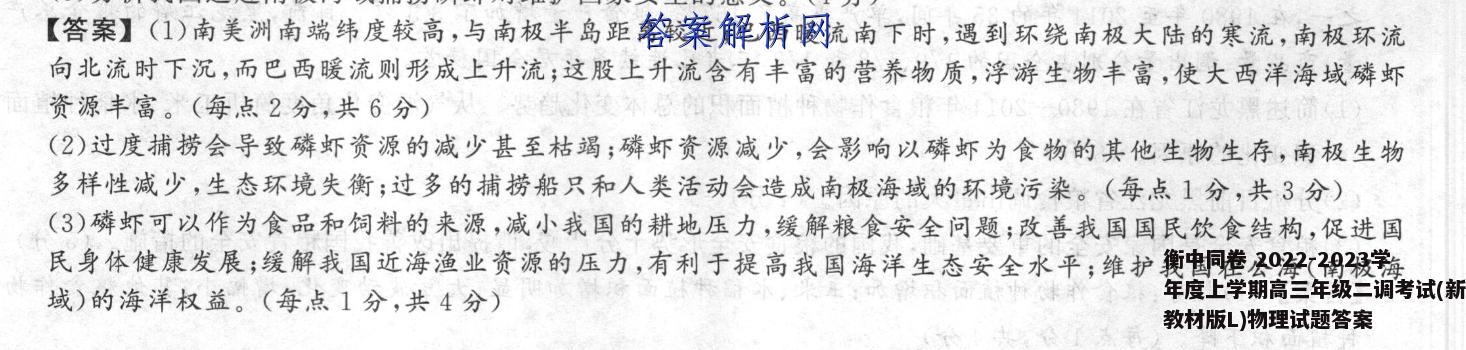 【答案】(1)南美洲南端纬度较高,与南极半岛距 较近;巴西暖流南下时,遇到环绕南极大陆的寒流,南极环流
答案解析网
向北流时下沉,而巴西暖流则形成上升流;这股上升流含有丰富的营养物质,浮游生物丰富,使大西洋海域磷虾
资源丰富。(每点 2 分,共 6 分)
(2)过度捕捞会导致磷虾资源的减少甚至枯竭;磷虾资源减少,会影响以磷虾为食物的其他生物生存,南极生物
多样性减少,生态环境失衡;过多的捕捞船只和人类活动会造成南极海域的环境污染。(每点 1 分,共 3 分)
(3)磷虾可以作为食品和饲料的来源,减小我国的耕地压力,缓解粮食安全问题;改善我国国民饮食结构,促进国
民身体健康发展;缓解我国近海渔业资源的压力,有利于提高我国海洋生态安全水平;维护我国在公海(南极海
域)的海洋权益。(每点 1 分,共 4 分)
衡中同卷 2022-2023学
年度上学期高三年级二调考试(新
教材版L)物理试题答案